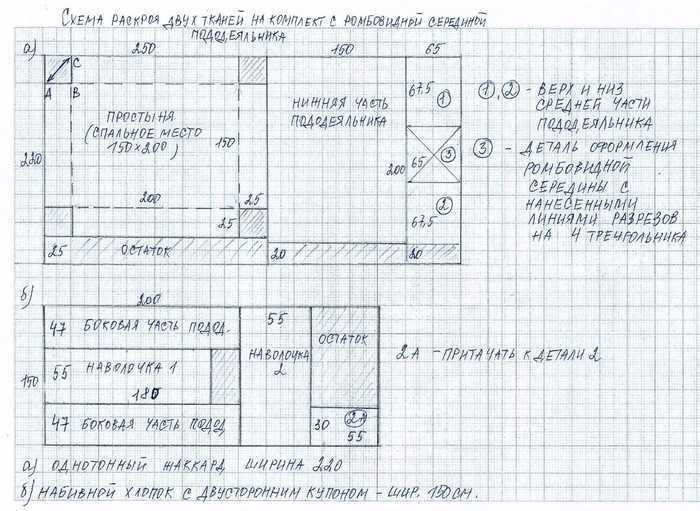 СХЕМА РАСКРОЯ ДВУХ ТКАНЕЙ НА КОМПЛЕКТ С РОМБОВИДНОЙ СЕРЕДИНОЙ
ПОДОДЕЯЛЬНИКА
а)
250
150
65
С
А
В
ПРОСТЫНЯ
(СПАЛЬНОЕ МЕСТО
150×200)
150
220
200
25
25
25
ОСТАТОК
НИЖНЯЯ ЧАСТЬ
ПОДОДЕЯЛЬНИКА
200
20
67,5
1
65
3
2
67,5
20
1, 2 - ВЕРХ И НИЗ
СРЕДНЕЙ ЧАСТИ
ПОДОДЕЯЛЬНИКА
3 - ДЕТАЛЬ ОФОРМЛЕНИЯ
РОМБОВИДНОЙ
СЕРЕДИНЫ С
НАНЕСЕННЫМИ
ЛИНИЯМИ РАЗРЕЗОВ
НА 4 ТРЕУГОЛЬНИКА
б)
200
150
47 БОКОВАЯ ЧАСТЬ ПОДОД.
55 НАВОЛОЧКА 1
180
47 БОКОВАЯ ЧАСТЬ ПОДОД
55
НАВОЛОЧКА
2
ОСТАТОК
30
2А
55
2А - ПРИТАЧАТЬ К ДЕТАЛИ 2
а) ОДНОТОННЫЙ ЖАККАРД ШИРИНА 220
б) НАБИВНОЙ ХЛОПОК С ДВУСТОРОННИМ КУПОНОМ - ШИР. 150 СМ.